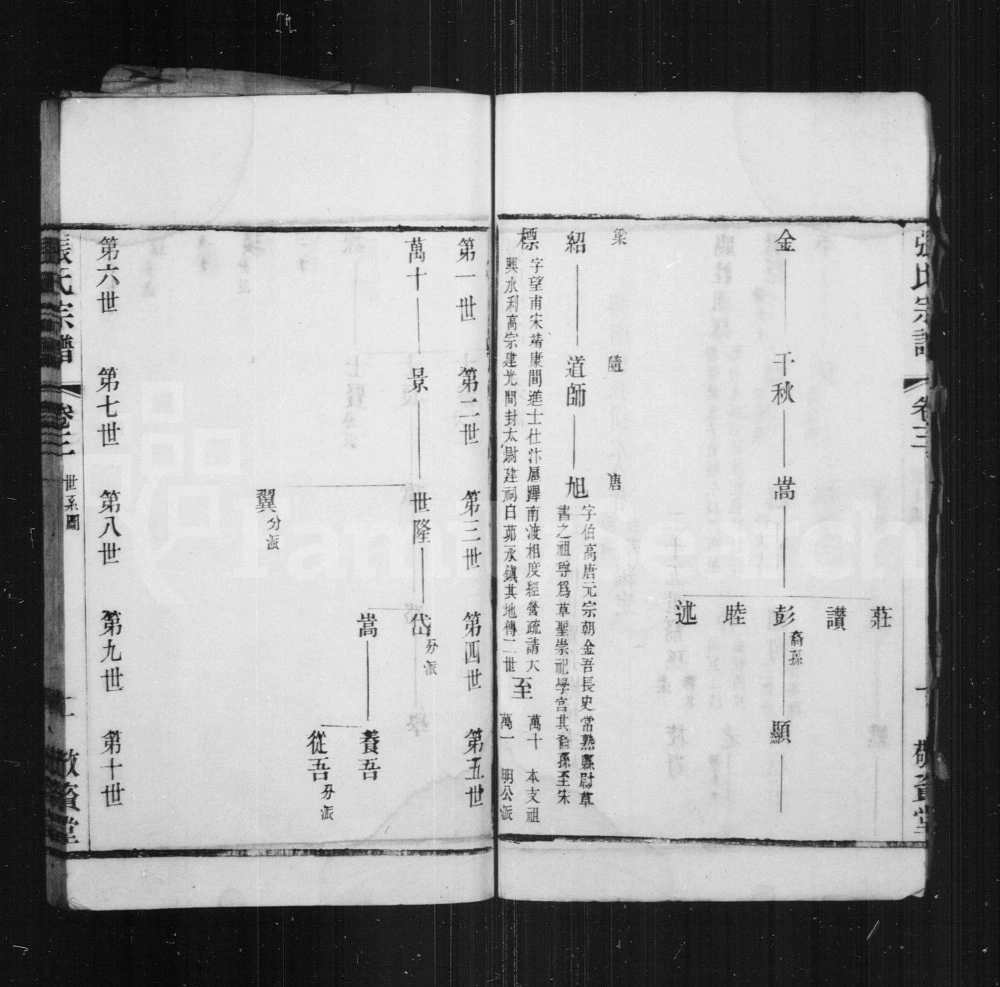 張氏宗譜 卷三 一 敬資堂
莊
讃
金 千秋 嵩 彭 裔孫 顯
睦
述
梁 隨 唐
紹 道師 旭
字伯高唐元宗朝金吾長史常熟縣尉草
書之祖尊爲草聖崇祀學宮其裔孫至宋
標
字望甫宋靖康間進士仕汴扈蹕南渡相度經營疏請大
興水利高宗建光間封太尉建祠白茆永鎮其地傳二世
至
萬十 本支祖
萬一 明公派
第一世 第二世 第三世 第四世 第五世
萬十 景 世隆 岱 分派
嵩 養吾
從吾 分派
翼 分派
第六世 第七世 第八世 第九世 第十世
張氏宗譜 卷三 世系圖 二 敬資堂